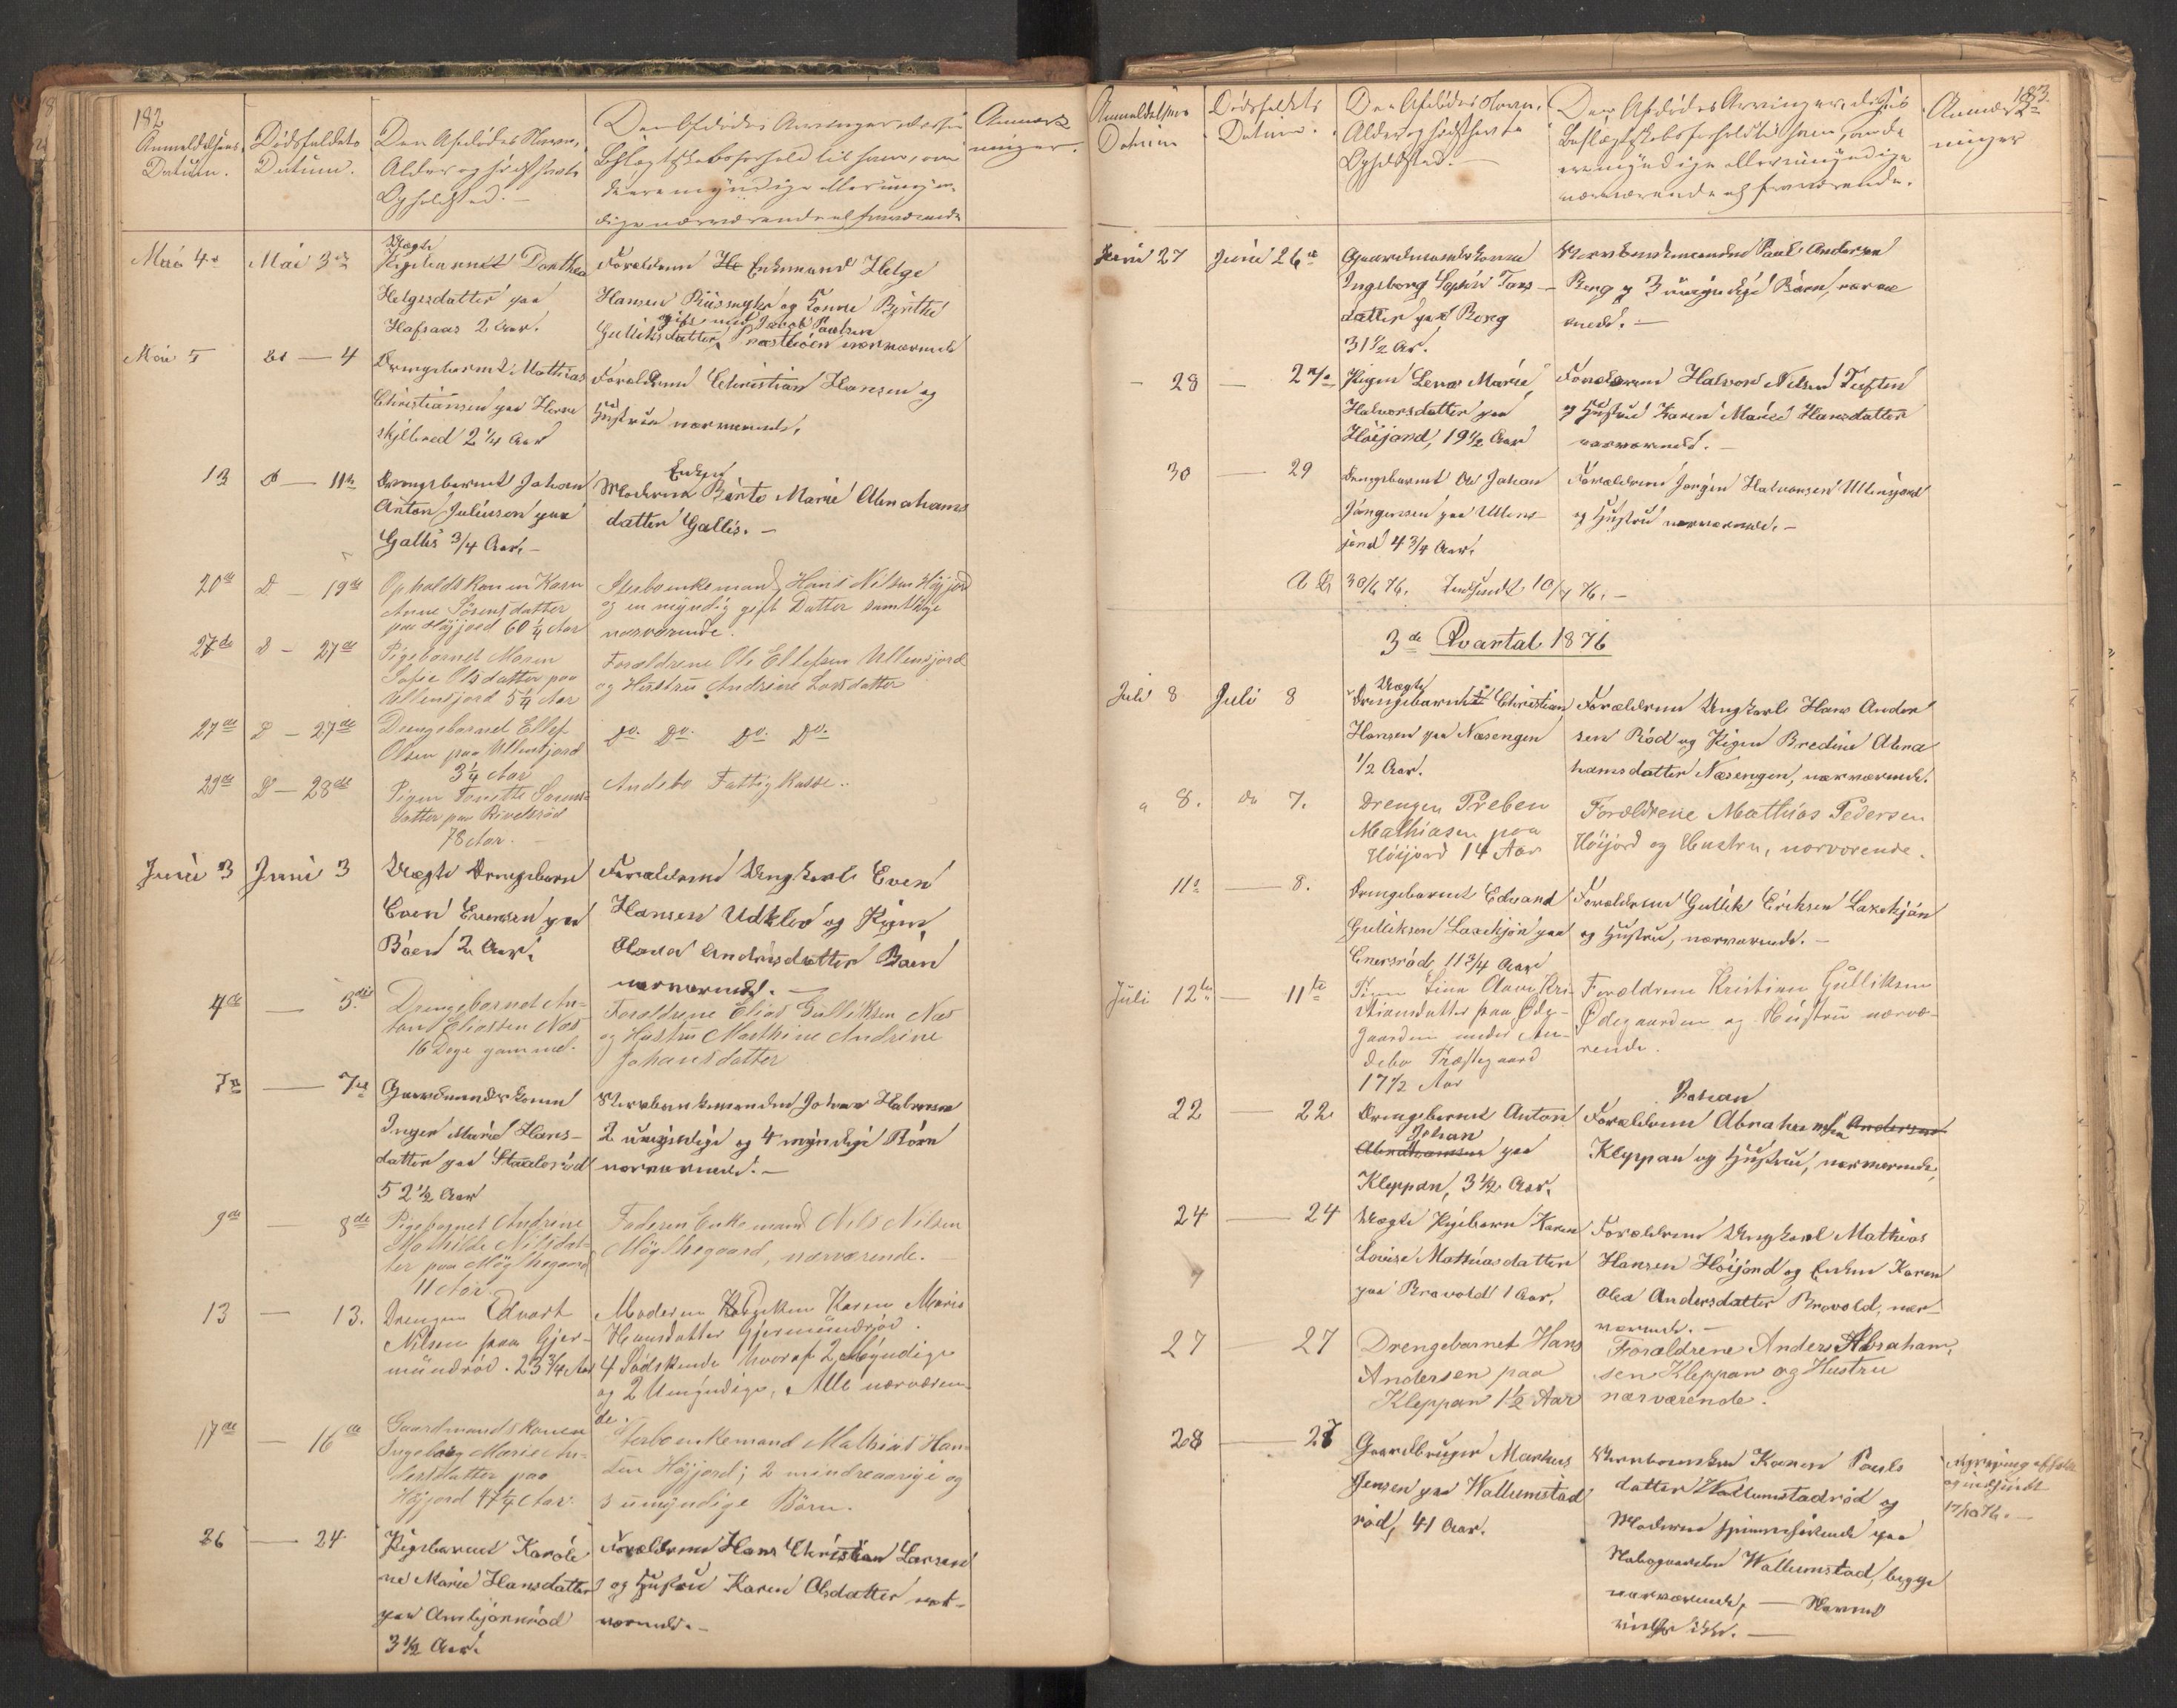 182
Anmeldelsens
Datum.
Dødsfaldets
Datum.
Den Afdødes Navn,
Alder og sidst havte
Opholdsted. –
Den Afdødes Arvinger, dessen
Beslægtskabsforhold til ham, om
de ere myndige eller umyn-
dige nærværende el fraværende
Anmærk
ninger.
Mai 4de
Mai 3de
Uægte
Pigebarnet Dorthea
Helgesdatter paa
Hafsaas 2 Aar.
Forældrene He Enkemand Helge
Hansen Rismyhr og Konne Birthe
gift med Jacob Paulsen
Gulliksdatter, Prestbøen nærværende
Mai 5
do – 4
Drengebarnet Mathias
Christiansen paa Herre
skjelbred 2 1/4 Aar
Forældrene Christian Hansen og
Hustru nærværende.
13
D – 11te
Drengebarnet Johan
Anton Juliusen paa
Gallis 3/4 Aar. –
Enken
Moderen Birte Marie Abrahams
datter Gallis. –
20de
D – 19de
Opholdskonen Karen
Anne Sørensdatter
paa Høyjord 60 1/4 Aar
Sterboenkemand Hans Nilsen Høyjord
og en myndig gift Datter samtlige
nærværende.
27de
D – 27de
Pigebarnet Maren
Sofie Olsdatter paa
Ullensjord 5 1/4 Aar
Forældrene Ole Ellefsen Ullensjord
og Hustru Andrine Larsdatter
27de
D – 27de
Drengebarnet Ellef
Olsen paa Ullensjord
3 1/4 Aar
Do. Do. Do. Do.
29de
D – 28de
Pigen Tonette Sørens-
datter paa Rivelsrød
78 Aar.
Andebo Fattigkasse.
Juni 3
Juni 3
Uægte Drengebarn
Even Evensen paa
Bøen 2 Aar.
Forældrene Ungkarl Even
Hansen Udklev og Pigen
Olava Andrisdatter Bøen
nærværende. –
4de
– 3die
Drengebarnet An-
ton Eliassen Nøs
16 Dage gammel.
Forældrene Elias Gulliksen Nøs
og Hustru Marthine Andrine
Johansdatter
7de
– 7de
Gaardmandskonen
Inger Marie Hans-
datter paa Staalerød
52 1/2 Aar
Sterboenkemanden Johan Halvorsen
2 umyndige og 4 myndige Børn
nærværende. –
9de
– 8de
Pigebarnet Andrine
Mathilde Nilsdat-
ter paa Møglhegaard
11 Aar
Faderen Enkemand Nils Nilsen
Møglhegaard, nærværende. –
13
– 13.
Drengen Edvart
Nilsen paa Gjer-
mundrød. 23 3/4 Aar
Moderen Enken Karen Marie
Hansdatter Gjermundrød.
4 Sødskende hvoraf 2 Myndige
og 2 Umyndige, Alle nærværen-
de.
17de
– 16de
Gaardmandskonen
Ingeborg Marie An-
dersdatter paa
Høyjord 47 1/4 Aar.
Sterboenkemand Mathias Han-
sen Høyjord; 2 mindreaarige og
3 umyndige Børn.
26
– 24
Pigebarnet Karoli
ne Marie Hansdatter
paa Arnbjørnrød
3 1/2 Aar.
Forældrene Hans Christian Larsen
og Hustru Karen Olsdatter nær-
værende. –
183.
Anmeldelsens
Datum
Dødsfaldets
Datum.
Den Afdødes Navn,
Alder og sidst havte
Opholdsted. –
Den Afdødes Arvinger, disses
Beslægtskabsforhold til ham, om de
ere myndige eller umyndige
nærværende el fraværende.
Anmærk-
ninger
Juni 27
Juni 26de
Gaardmandskonne
Ingeborg Sophie Tans-
datter paa Berg
31 1/2 Ar.
Sterboenkemanden Paul Andersen
Berg og 3 umyndige Børn, nærvæ
rende. –
– 28
– 27de
Pigen Lena Marie
Halvorsdatter paa
Høijord, 19 1/2 Aar
Forældrene Halvor Nilsen Tuften
og Hustru Karen Marie Hansdatter
nærværende. –
30
– 29
Drengebarnet Ole Johan
Jørgensen paa Ullens-
jord 4 3/4 Aar.
Forældrene Jørgen Halvorsen Ullensjord
og Hustru nærværende. –
A B 30/6 76. Indsendt 10/7 76. –
3de Qvartal 1876
Juli 8
Juli 8
Uægte
Drengebarnet Christian
Hansen paa Næsengen
1/2 Aar.
Forældrene Ungkarl Hans Ander
sen Rød og Pigen Bredine Abra
hamsdatter Næsengen, nærværende.
" 8.
do 7.
Drengen Preben
Mathiasen paa
Høijord 14 Aar
Forældrene Mathias Pedersen
Høijord og Hustru, nærværende.
11te
– 8.
Drengebarnet Edvard
Gulliksen Laxekjøn paa
Enersrød, 11 3/4 Aar
Forældrene Gullik Eriksen Laxekjøn
og Hustru, nærværende. –
Juli 12te
– 11te
Pigen Lina Anne Kri-
stiansdatter paa Øde-
gaarden under An-
debo Præstegaard
17 1/2 Aar
Forældrene Kristian Gulliksen
Ødegaarden og Hustru nærvæ-
rende.
22
– 22
Drengebarnet Anton
Johan
Abrahamsen paa
Kleppan, 3 1/2 Aar.
Johan
Forældrene Abrahamsen Andersen
Kleppan og Hustru, nærværende.
24
– 24
Uægte Pigebarn Karen
Lovise Mathiasdatter
paa Bravold 1 Aar.
Forældrene Ungkarl Mathias
Hansen Høijord og Enken Karen
Olea Andersdatter Bravold, nær-
værende. –
27
– 27
Drengebarnet Hans
Andersen paa
Kleppan 1 1/2 Aar
Forældrene Anders Abraham-
sen Kleppan og Hustru
nærværende.
28
– 27
Gaardbruger Markus
Jensen paa Wallumstad
rød, 41 Aar.
Sterboenken Karen Pauls
datter Wallumstadrød og
Moderen paa
Nabogaarden Wallumstad, begge
nærværende, – Navnet
vides ikke. –
og indsendt
17/10 76. –